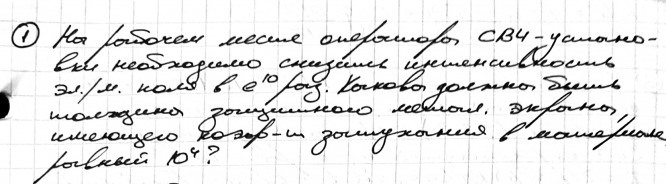 ① На рабочем месте оператора СВЧ-устано-
вки необходимо снизить интенсивность
эл./м. поля в e¹⁰ раз. Какова должна быть
толщина защитного метал. экрана,
имеющего коэф-т затухания в материале
равный 10⁴?